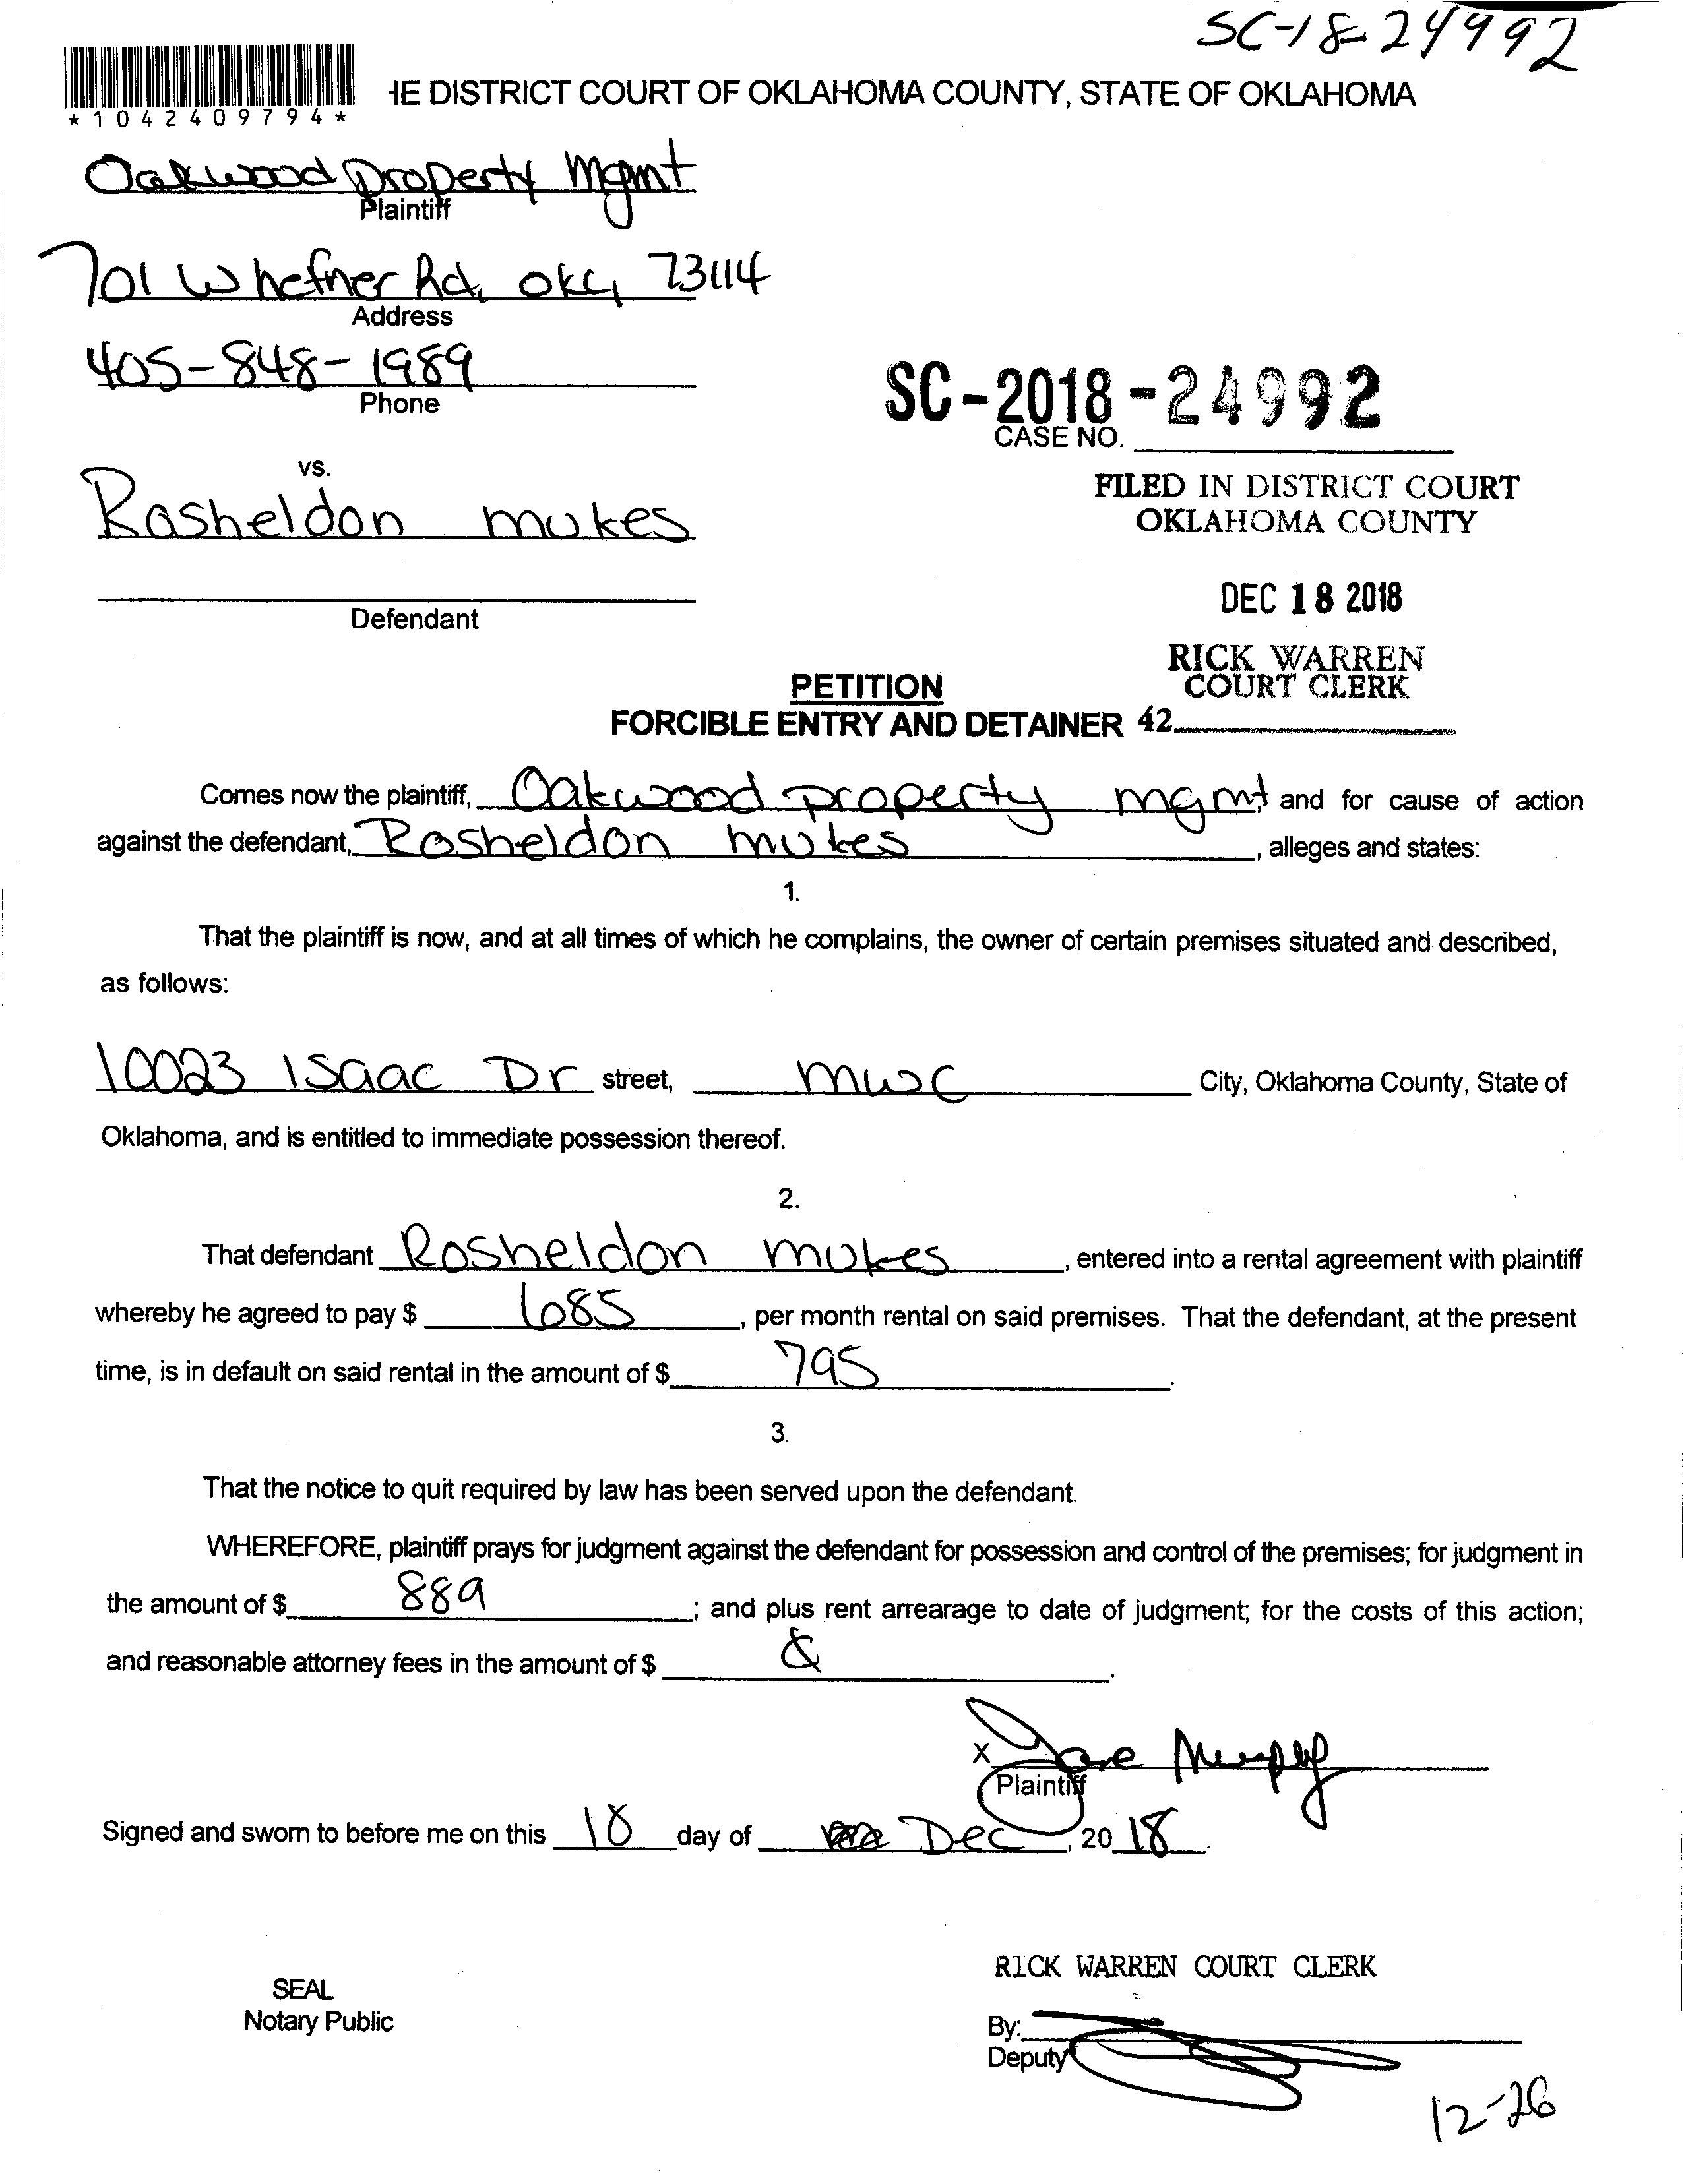 SC-18-24992
*1042409794*
HE DISTRICT COURT OF OKLAHOMA COUNTY, STATE OF OKLAHOMA
Oakwood Property Mgmt
Plaintiff
701 W hefner Rd, OKC, 73114
Address
405-848-1989
Phone
SC-2018-24992
CASE NO.
vs.
Rasheldon mukes
FILED IN DISTRICT COURT
OKLAHOMA COUNTY
DEC 18 2018
Defendant
RICK WARREN
COURT CLERK
PETITION
FORCIBLE ENTRY AND DETAINER 42
Comes now the plaintiff, Oakwood property mgmt and for cause of action
against the defendant, Rosheldon mukes, alleges and states:
1.
That the plaintiff is now, and at all times of which he complains, the owner of certain premises situated and described,
as follows:
10023 Isaac Dr street, mwc City, Oklahoma County, State of
Oklahoma, and is entitled to immediate possession thereof.
2.
That defendant Rosheldon mukes, entered into a rental agreement with plaintiff
whereby he agreed to pay $ 685, per month rental on said premises. That the defendant, at the present
time, is in default on said rental in the amount of $ 795.
3.
That the notice to quit required by law has been served upon the defendant.
WHEREFORE, plaintiff prays for judgment against the defendant for possession and control of the premises; for judgment in
the amount of $ 889; and plus rent arrearage to date of judgment; for the costs of this action;
and reasonable attorney fees in the amount of $ .
X Jane Murphy
Plaintiff
Signed and sworn to before me on this 18 day of Dec, 2018.
RICK WARREN COURT CLERK
SEAL
Notary Public
By:
Deputy
12-26